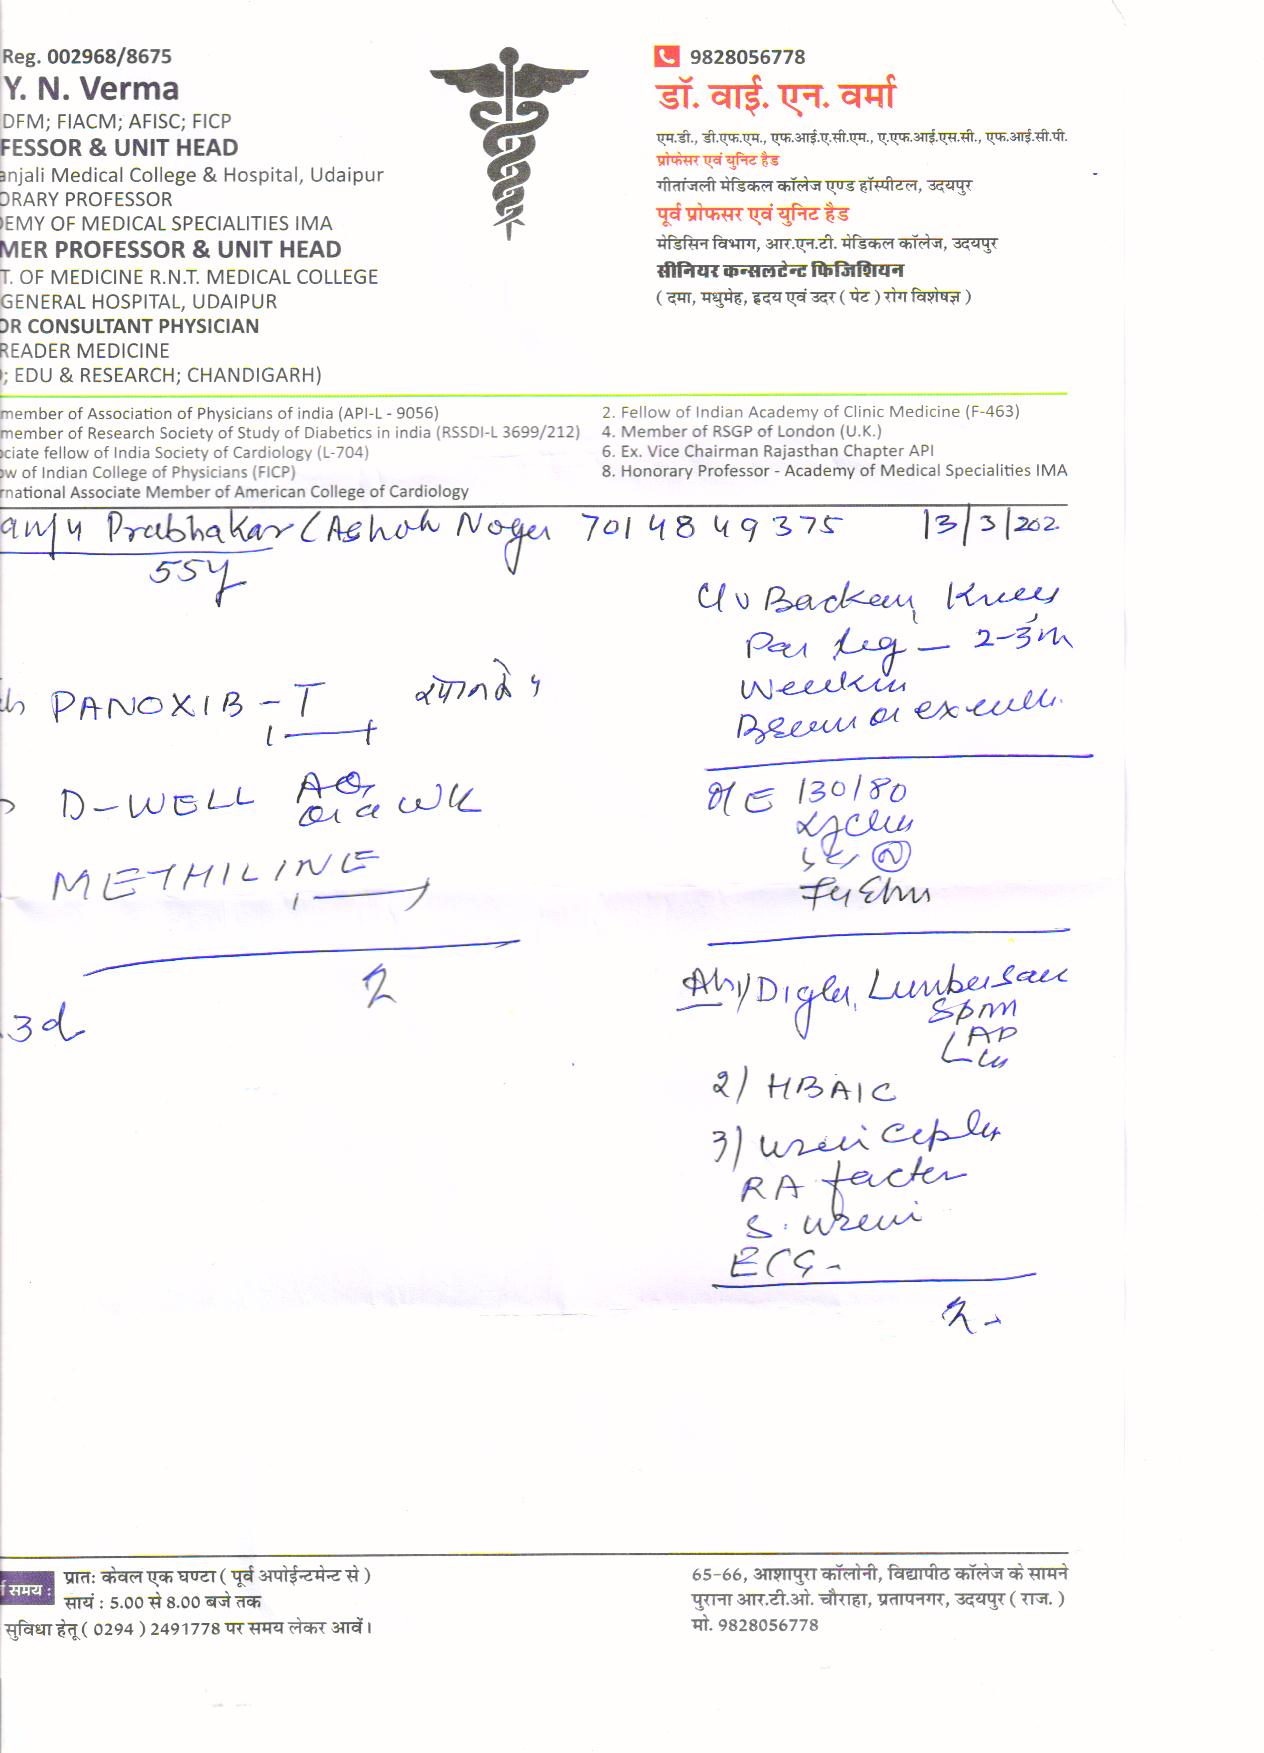 Reg. 002968/8675
Y. N. Verma
DFM; FIACM; AFISC; FICP
FESSOR & UNIT HEAD
anjali Medical College & Hospital, Udaipur
ORARY PROFESSOR
EMY OF MEDICAL SPECIALITIES IMA
MER PROFESSOR & UNIT HEAD
T. OF MEDICINE R.N.T. MEDICAL COLLEGE
GENERAL HOSPITAL, UDAIPUR
OR CONSULTANT PHYSICIAN
READER MEDICINE
; EDU & RESEARCH; CHANDIGARH)
9828056778
डॉ. वाई. एन. वर्मा
एम.डी., डी.एफ.एम., एफ.आई.ए.सी.एम., ए.एफ.आई.एस.सी., एफ.आई.सी.पी.
प्रोफेसर एवं युनिट हैड
गीतांजली मेडिकल कॉलेज एण्ड हॉस्पीटल, उदयपुर
पूर्व प्रोफसर एवं युनिट हैड
मेडिसिन विभाग, आर.एन.टी. मेडिकल कॉलेज, उदयपुर
सीनियर कन्सलटेन्ट फिजिशियन
( दमा, मधुमेह, हृदय एवं उदर ( पेट ) रोग विशेषज्ञ )
member of Association of Physicians of india (API-L - 9056)
member of Research Society of Study of Diabetics in india (RSSDI-L 3699/212)
ciate fellow of India Society of Cardiology (L-704)
w of Indian College of Physicians (FICP)
rnational Associate Member of American College of Cardiology
2. Fellow of Indian Academy of Clinic Medicine (F-463)
4. Member of RSGP of London (U.K.)
6. Ex. Vice Chairman Rajasthan Chapter API
8. Honorary Professor - Academy of Medical Specialities IMA
anju Prabhakar (Ashok 7014849375 13/3/202
55y
PANOXIB - T
D-WELL
METHILINE
3d
Knees
leg - 2-3m
O/E 130/80
Spine
AP
2) HBA1C
3)
RA factor
S.
ECG
समय :
प्रातः केवल एक घण्टा ( पूर्व अपोईन्टमेन्ट से )
सायं : 5.00 से 8.00 बजे तक
सुविधा हेतू ( 0294 ) 2491778 पर समय लेकर आवें।
65-66, आशापुरा कॉलोनी, विद्यापीठ कॉलेज के सामने
पुराना आर.टी.ओ. चौराहा, प्रतापनगर, उदयपुर ( राज. )
मो. 9828056778